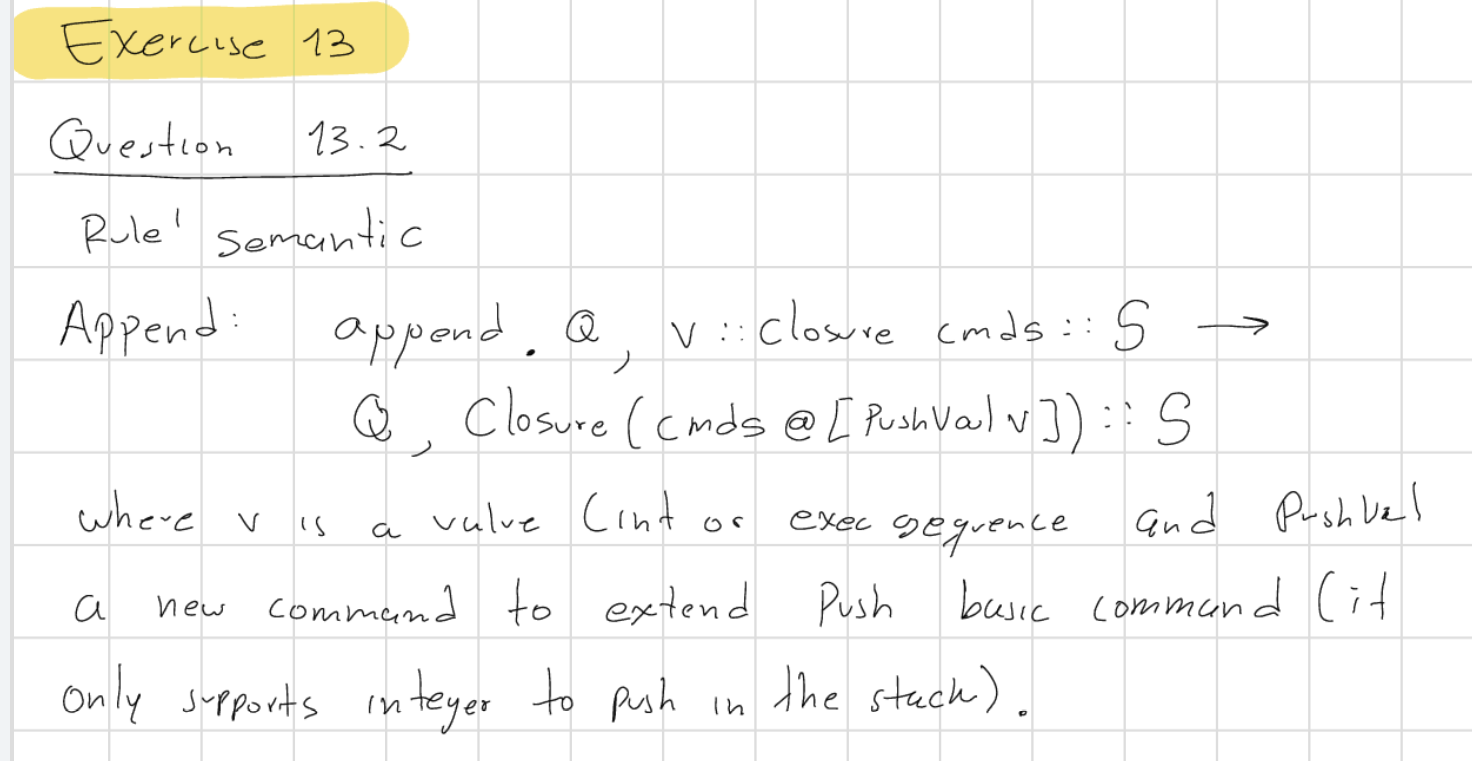 Exercise 13
Question 13.2
Rule' semantic
Append: append . Q, v :: Closure cmds :: S →
Q, Closure (cmds @ [PushVal v]) :: S
where v is a value (int or exec sequence and PushVal
a new command to extend Push basic command (it
only supports integer to push in the stack).